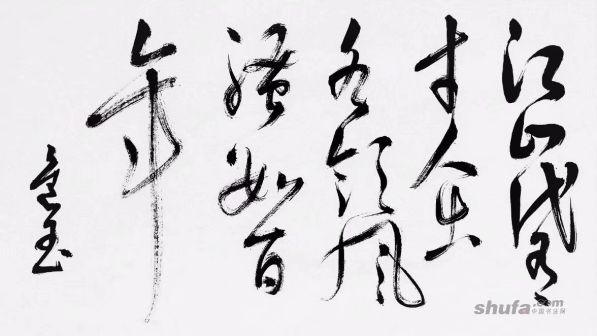 江山代有
才人出
各领风
骚数百
年
shufa.com
中国书法网